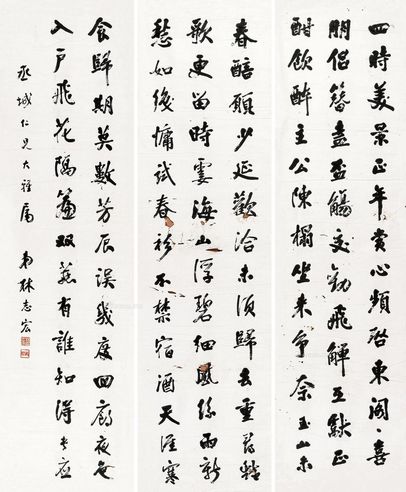 四時美景正年賞心頻啓東閣喜
朋侶簪盍盃觴交勸飛觶互缺正
酣飲醉主公陳榻坐來爭奈玉山未
春醅願少延歡洽未須歸去重尋
歌更留時霎海山浮碧細風絲雨新
愁如織慵試春衫不禁宿酒天涯寒
食歸期莫數芳辰誤幾度回廊夜色
入戶飛花隔簾雙燕有誰知得
丞城仁兄大雅屬 弟林志宏